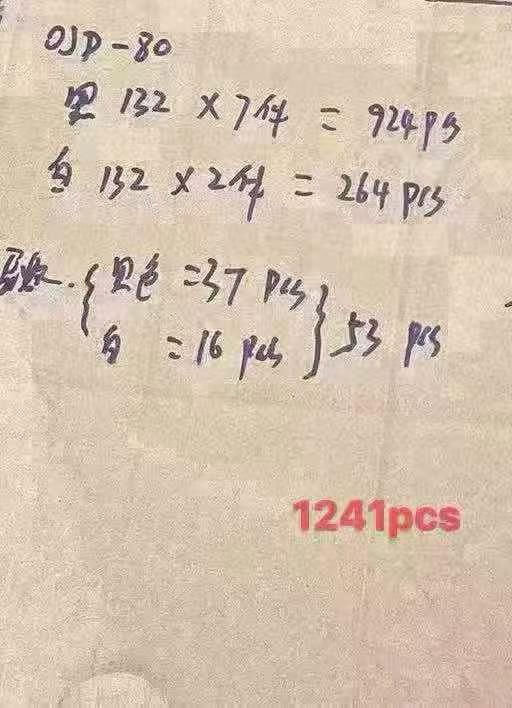 OJD-80
黑 132 × 7件 = 924 pcs
白 132 × 2件 = 264 pcs
尾数. { 黑色 = 37 pcs
白 = 16 pcs } 53 pcs
1241pcs